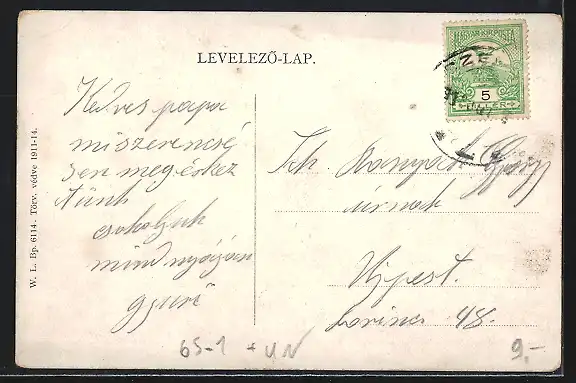 LEVELEZŐ-LAP.
MAGYAR KIR. POSTA
5
FILLÉR
Kedves papa
mi szerencsé
sen megérkez
tünk
csokoljuk
mindnyájan
gyuri
Tek
úrnak
Ujpest.
Lorinc 48.
W. L. Bp. 6114. Törv. védve 1911-14.
65-1 + UN
9.-